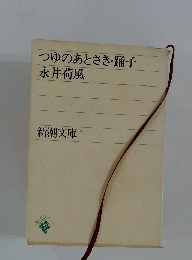 つゆのあとさき・踊子
永井荷風
新潮文庫